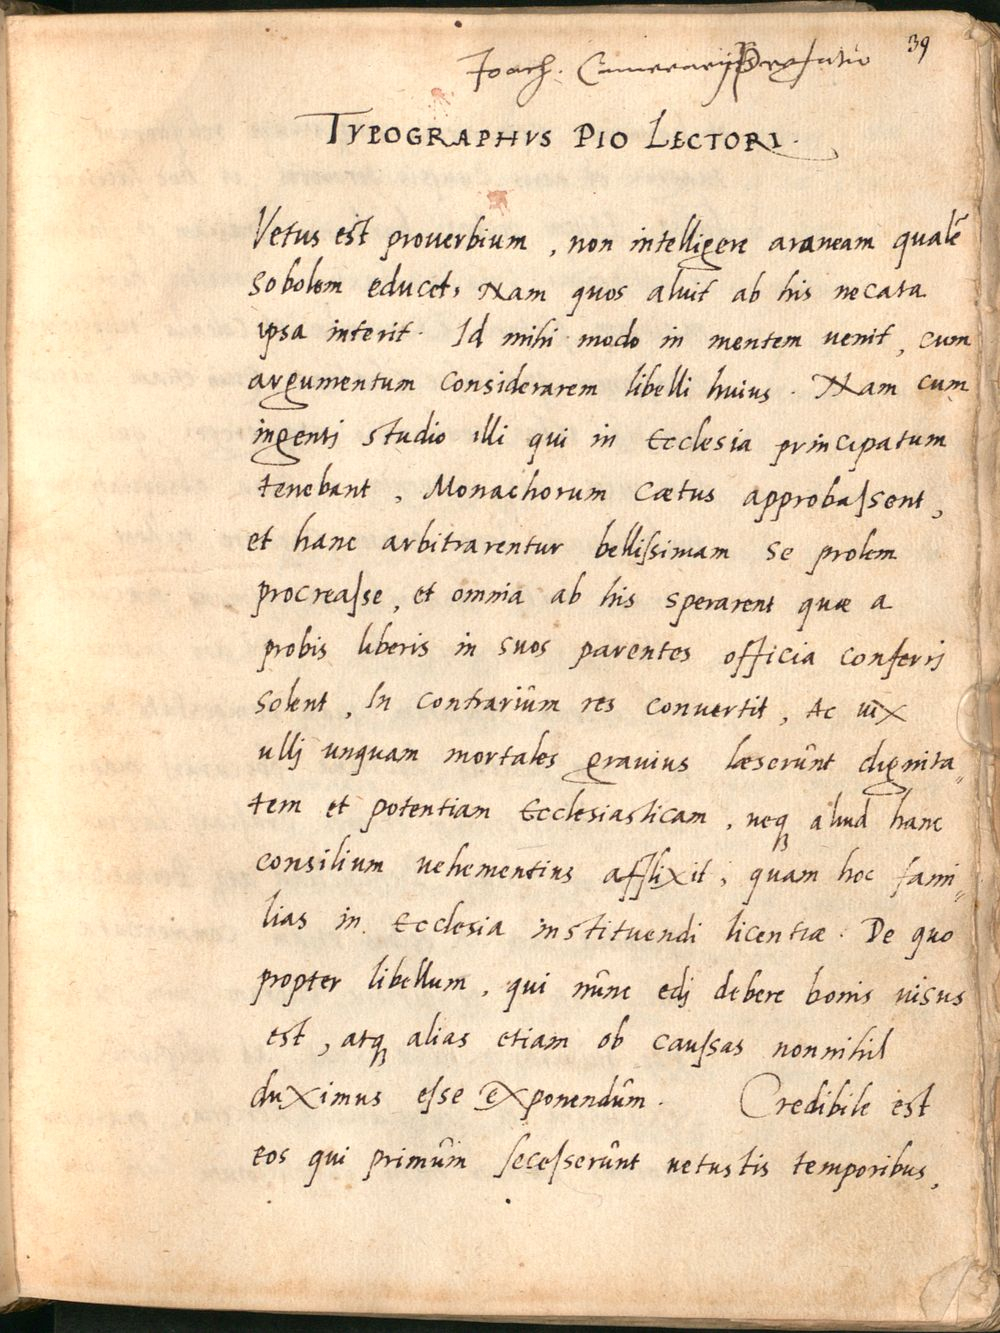 39
Joach. Camerarij Præfatio
TYPOGRAPHVS PIO LECTORI.
Vetus est prouerbium, non intelligere araneam qualē
sobolem educet, Nam quos aluit ab his necata
ipsa interit. Id mihi modo in mentem uenit, cum
argumentum considerarem libelli huius. Nam cum
ingentj studio illi qui in Ecclesia principatum
tenebant, Monachorum cœtus approbaſsent,
et hanc arbitrarentur belliſsimam se prolem
procreaſse, et omnia ab his sperarent quæ a
probis liberis in suos parentes officia conferrj
solent, In contrariûm res conuertit, Ac uix
ullj unquam mortales grauius læserûnt dignita„
tem et potentiam Ecclesiasticam, neqꝫ aliud hanc
consilium uehementius afflixit, quam hoc fami„
lias in Ecclesia instituendi licentiæ. De quo
propter libellum, qui nûnc edj debere bonis uisus
est, atqꝫ alias etiam ob cauſsas nonnihil
duximus eſse exponendûm. Credibile est
eos qui primûm ſeceſserûnt uetustis temporibus,